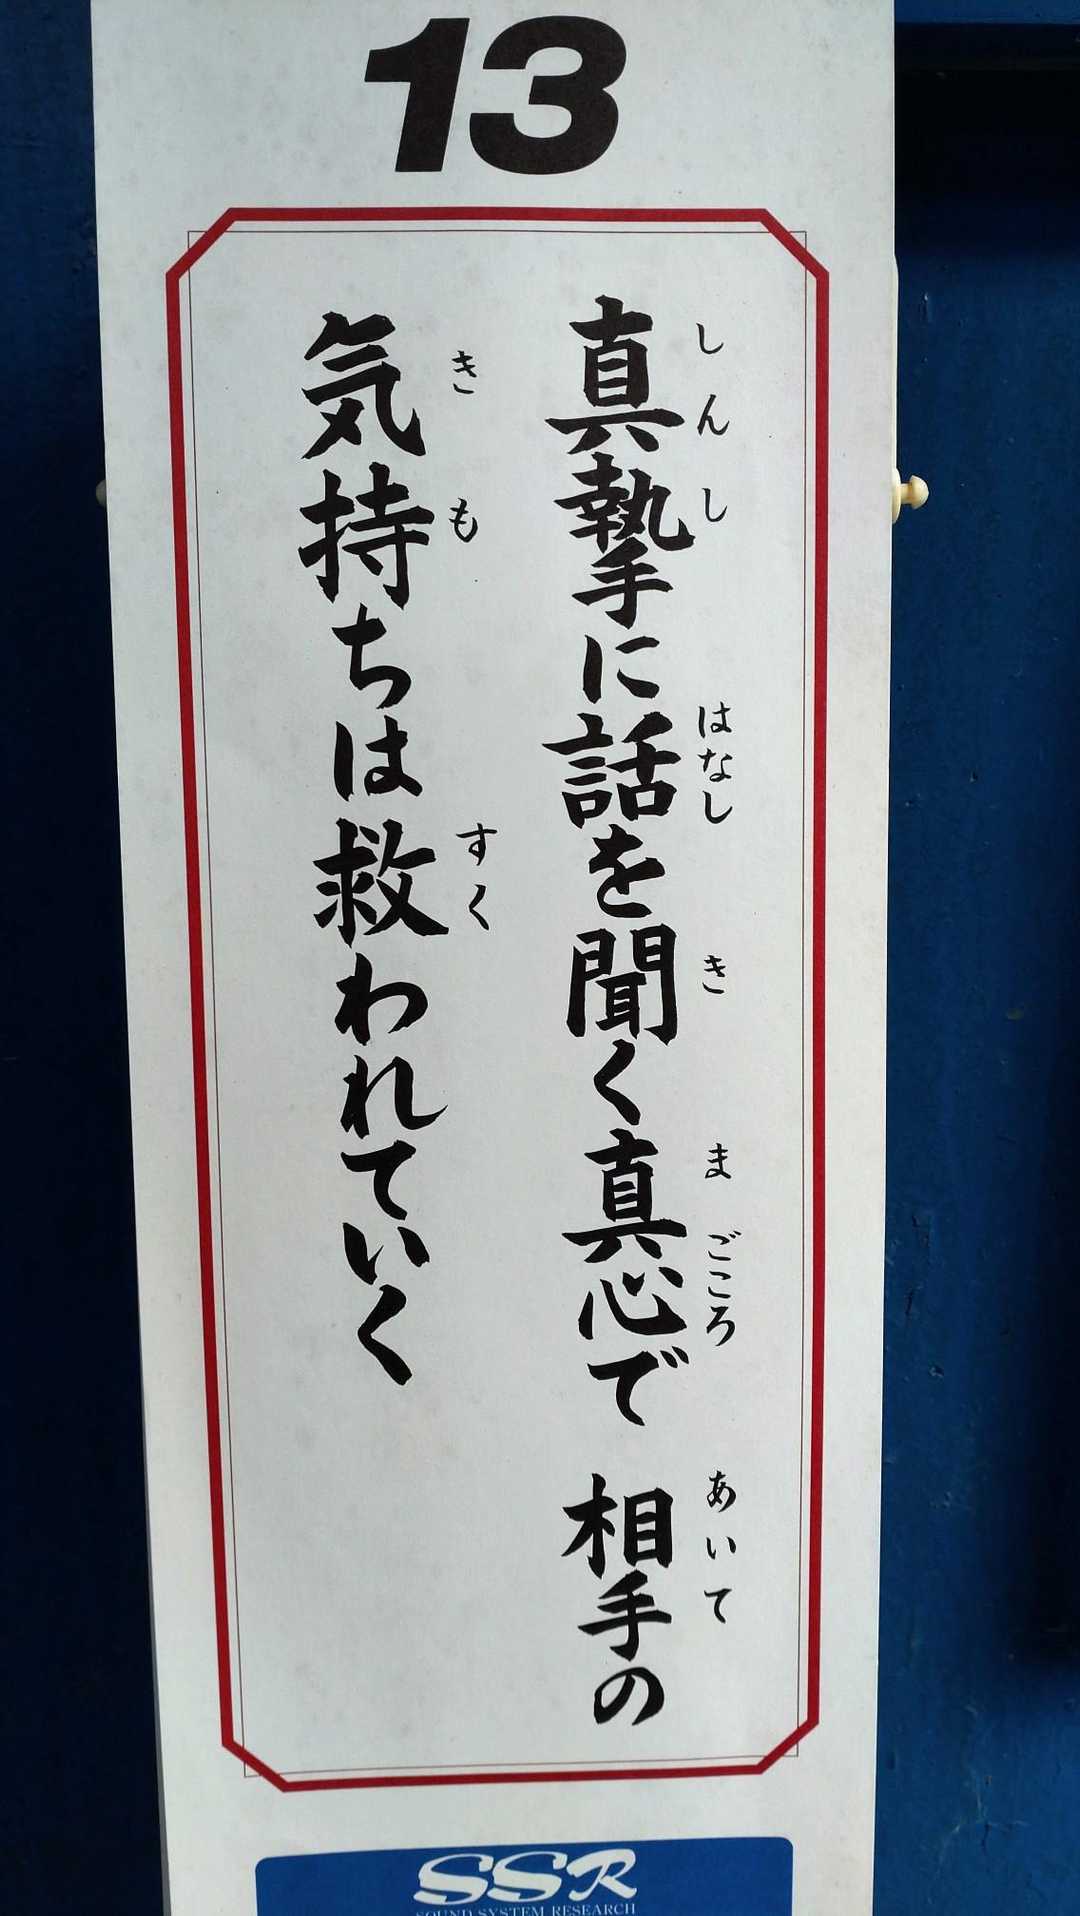 13
真摯に話を聞く真心で 相手の
しんし はなし き まごころ あいて
気持ちは救われていく
きも すく
SSR
SOUND SYSTEM RESEARCH